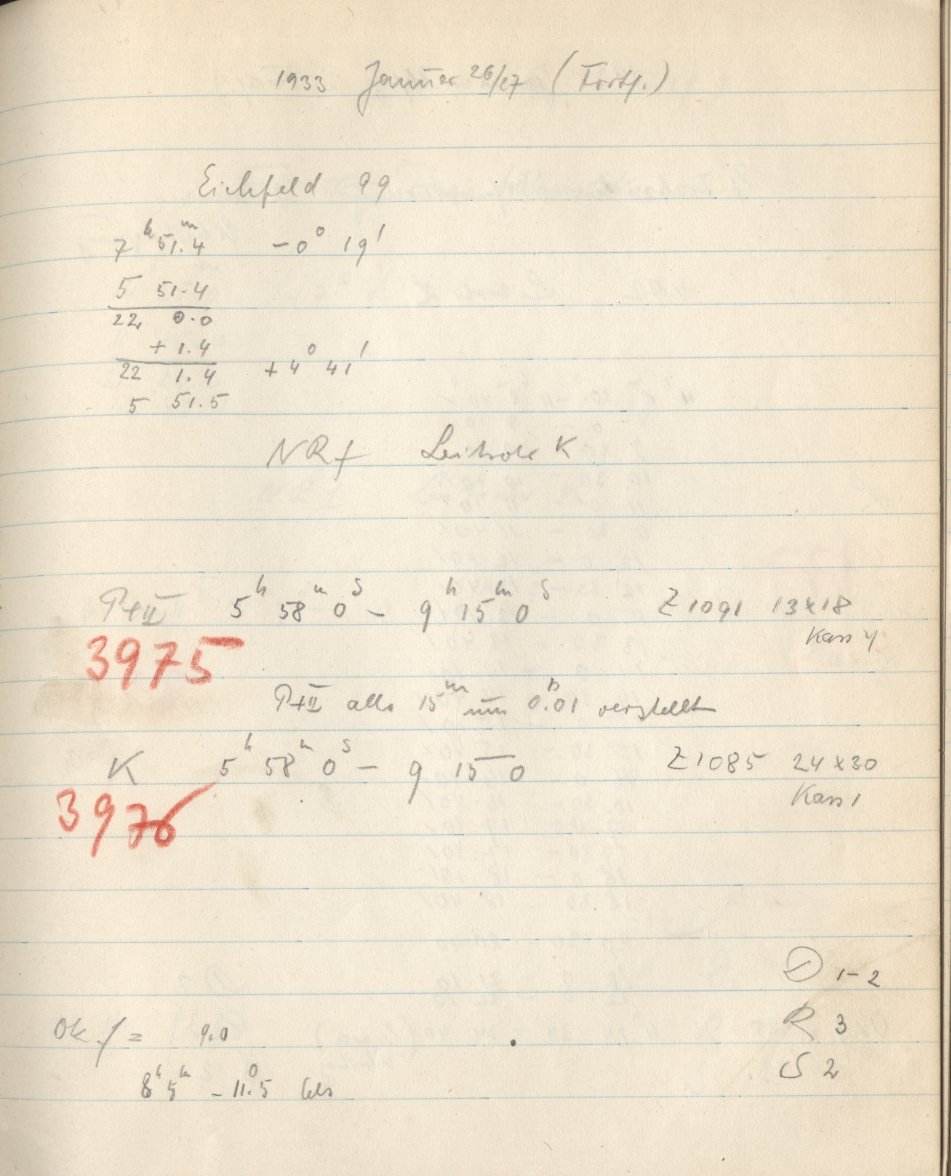 1933 Januar 26/27 (Fortf.)
Eichfeld 99
7ʰ 51.4ᵐ −0° 19'
5 51.4
22 0.0
+ 1.4
22 1.4 +4° 41'
5 51.5
NRf Leitrohr K
5ʰ 58ᵐ 0ˢ − 9ʰ 15ᵐ 0ˢ Z 1091 13×18
Kass 4
3975
alle 15ᵐ um 0.01 verstellt
K 5ʰ 58ᵐ 0ˢ − 9 15 0 Z 1085 24×30
Kass 1
3976
D 1−2
Ok f = 9.0 R 3
S 2
8ʰ 5ᵐ −11.5° Cels